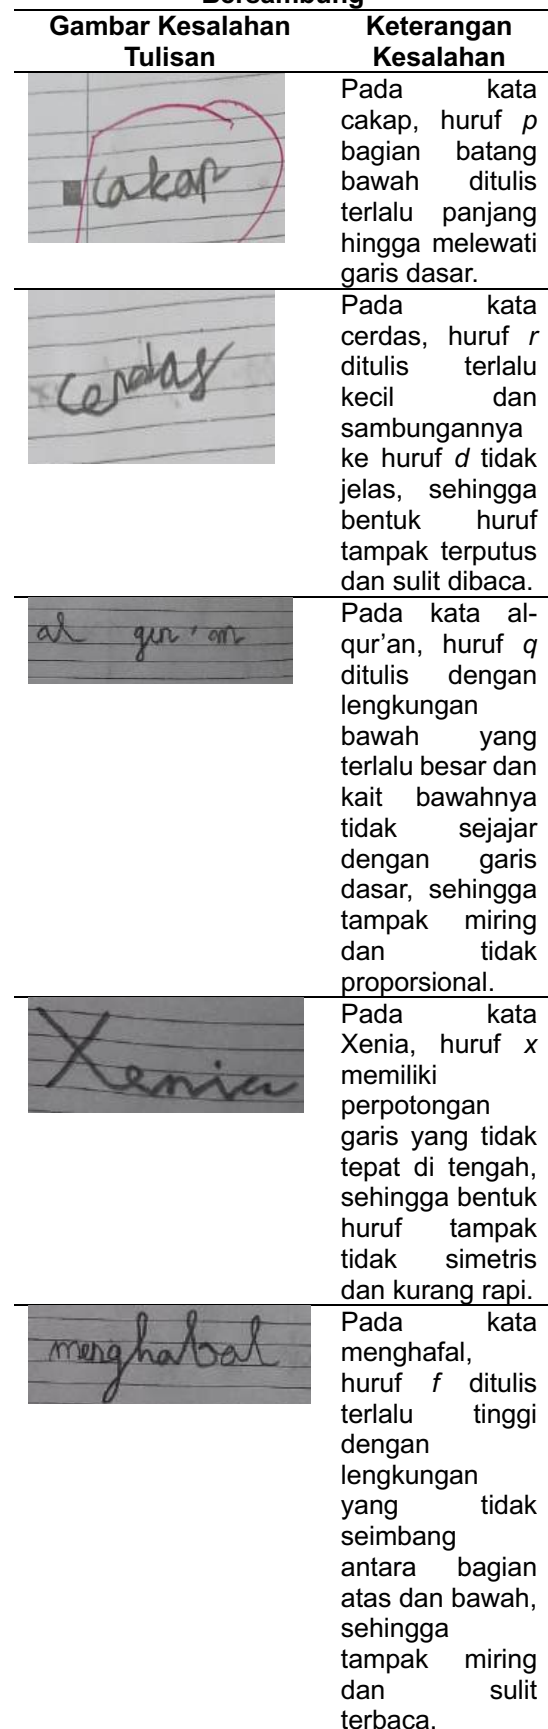 Bersambung
Gambar Kesalahan Tulisan
Keterangan Kesalahan
cakap
Pada kata
cakap, huruf p
bagian batang
bawah ditulis
terlalu panjang
hingga melewati
garis dasar.
cerdas
Pada kata
cerdas, huruf r
ditulis terlalu
kecil dan
sambungannya
ke huruf d tidak
jelas, sehingga
bentuk huruf
tampak terputus
dan sulit dibaca.
al qur'an
Pada kata al-
qur’an, huruf q
ditulis dengan
lengkungan
bawah yang
terlalu besar dan
kait bawahnya
tidak sejajar
dengan garis
dasar, sehingga
tampak miring
dan tidak
proporsional.
Xenia
Pada kata
Xenia, huruf x
memiliki
perpotongan
garis yang tidak
tepat di tengah,
sehingga bentuk
huruf tampak
tidak simetris
dan kurang rapi.
menghabal
Pada kata
menghafal,
huruf f ditulis
terlalu tinggi
dengan
lengkungan
yang tidak
seimbang
antara bagian
atas dan bawah,
sehingga
tampak miring
dan sulit
terbaca.